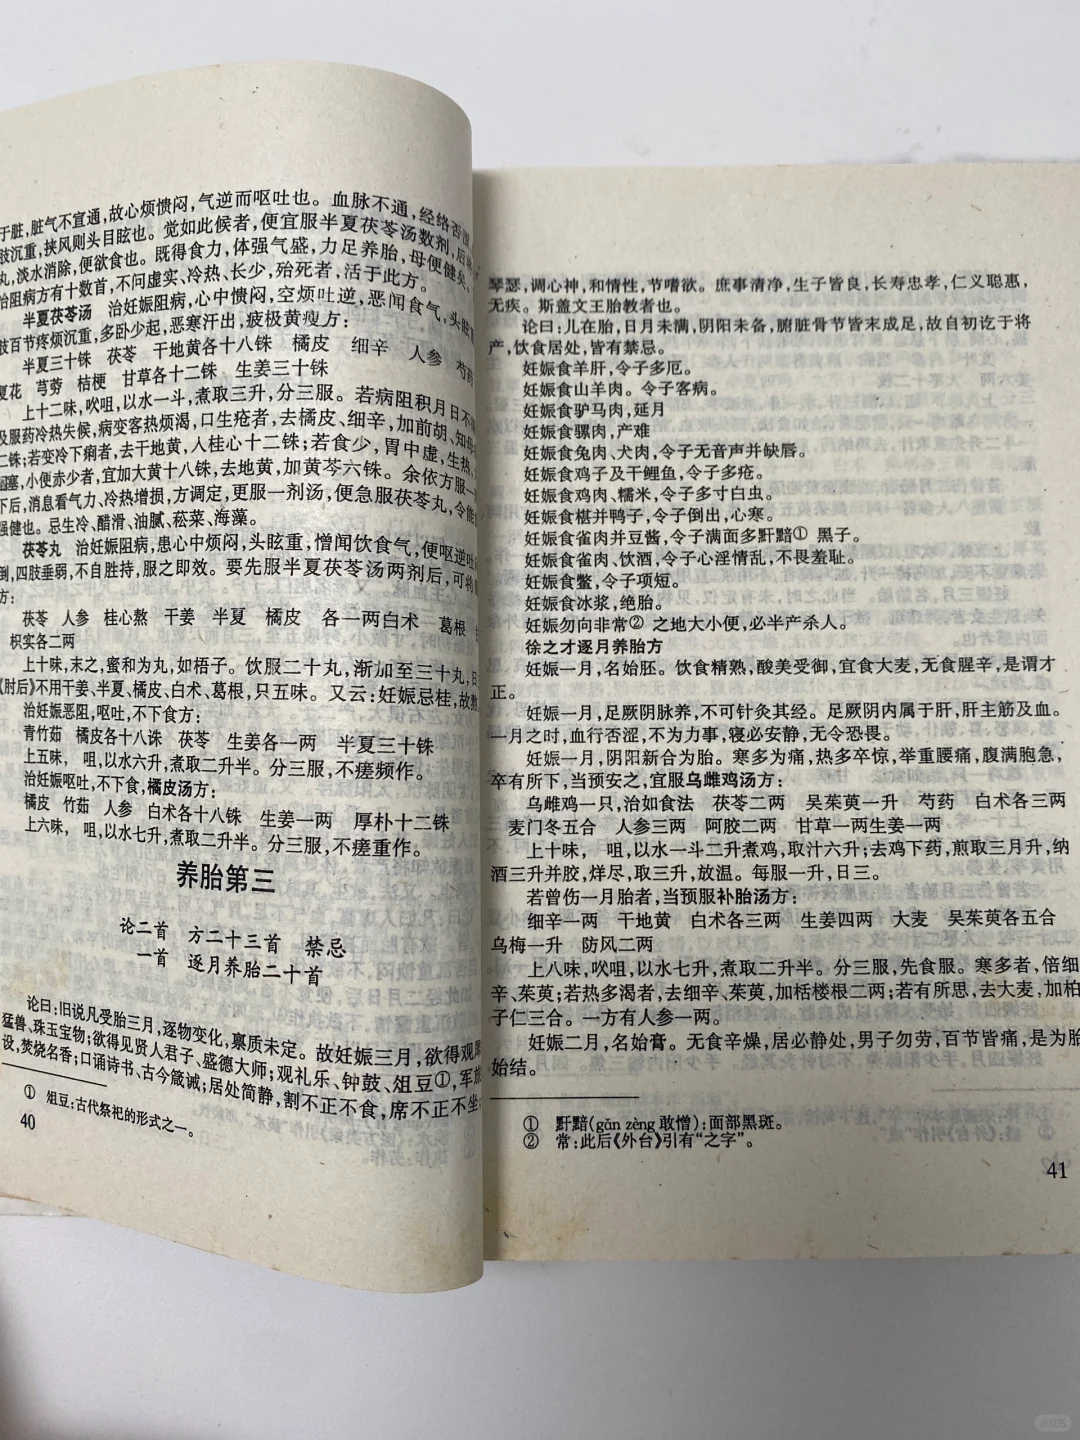 于脏,脏气不宣通,故心烦愦闷,气逆而呕吐也。血脉不通,经络否涩
肢沉重,挟风则头目眩也。觉如此候者,便宜服半夏茯苓汤数剂,后
丸,淡水消除,便欲食也。既得食力,体强气盛,力足养胎,母便健矣。
治阻病方有十数首,不问虚实、冷热、长少,殆死者,活于此方。
半夏茯苓汤 治妊娠阻病,心中愦闷,空烦吐逆,恶闻食气,头眩
肢百节疼烦沉重,多卧少起,恶寒汗出,疲极黄瘦方:
半夏三十铢 茯苓 干地黄各十八铢 橘皮 细辛 人参 芍药
夏花 芎䓖 桔梗 甘草各十二铢 生姜三十铢
上十二味,吹咀,以水一斗,煮取三升,分三服。若病阻积月日不
及服药冷热失候,病变客热烦渴,口生疮者,去橘皮、细辛,加前胡、知母
二铢;若变冷下痢者,去干地黄,人桂心十二铢;若食少,胃中虚,生热,
塞,小便赤少者,宜加大黄十八铢,去地黄,加黄芩六铢。余依方服一
下后,消息看气力、冷热增损,方调定,更服一剂汤,便急服茯苓丸,令能
强健也。忌生冷、醋滑、油腻、菘菜、海藻。
茯苓丸 治妊娠阻病,患心中烦闷,头眩重,憎闻饮食气,便呕逆吐
倒,四肢垂弱,不自胜持,服之即效。要先服半夏茯苓汤两剂后,可将
方:
茯苓 人参 桂心熬 干姜 半夏 橘皮 各一两白术 葛根
枳实各二两
上十味,末之,蜜和为丸,如梧子。饮服二十丸,渐加至三十丸,日
《肘后》不用干姜、半夏、橘皮、白术、葛根,只五味。又云:妊娠忌桂,故熬
治妊娠恶阻,呕吐,不下食方:
青竹茹 橘皮各十八诛 茯苓 生姜各一两 半夏三十铢
上五味, 咀,以水六升,煮取二升半。分三服,不瘥频作。
治妊娠呕吐,不下食,橘皮汤方:
橘皮 竹茹 人参 白术各十八铢 生姜一两 厚朴十二铢
上六味, 咀,以水七升,煮取二升半。分三服,不瘥重作。
养胎第三
论二首 方二十三首 禁忌
一首 逐月养胎二十首
论曰:旧说凡受胎三月,逐物变化,禀质未定。故妊娠三月,欲得观犀
猛兽、珠玉宝物;欲得见贤人君子、盛德大师;观礼乐、钟鼓、俎豆①,军旅
设,焚烧名香;口诵诗书、古今箴诫;居处简静,割不正不食,席不正不坐;
① 俎豆:古代祭祀的形式之一。
40
琴瑟,调心神,和情性,节嗜欲。庶事清净,生子皆良,长寿忠孝,仁义聪惠,
无疾。斯盖文王胎教者也。
论曰:儿在胎,日月未满,阴阳未备,腑脏骨节皆末成足,故自初讫于将
产,饮食居处,皆有禁忌。
妊娠食羊肝,令子多厄。
妊娠食山羊肉。令子客病。
妊娠食驴马肉,延月
妊娠食骡肉,产难
妊娠食兔肉、犬肉,令子无音声并缺唇。
妊娠食鸡子及干鲤鱼,令子多疮。
妊娠食鸡肉、糯米,令子多寸白虫。
妊娠食椹并鸭子,令子倒出,心寒。
妊娠食雀肉并豆酱,令子满面多䵟黯① 黑子。
妊娠食雀肉、饮酒,令子心淫情乱,不畏羞耻。
妊娠食鳖,令子项短。
妊娠食冰浆,绝胎。
妊娠勿向非常② 之地大小便,必半产杀人。
徐之才逐月养胎方
妊娠一月,名始胚。饮食精熟,酸美受御,宜食大麦,无食腥辛,是谓才
正。
妊娠一月,足厥阴脉养,不可针灸其经。足厥阴内属于肝,肝主筋及血。
一月之时,血行否涩,不为力事,寝必安静,无令恐畏。
妊娠一月,阴阳新合为胎。寒多为痛,热多卒惊,举重腰痛,腹满胞急,
卒有所下,当预安之,宜服乌雌鸡汤方:
乌雌鸡一只,治如食法 茯苓二两 吴茱萸一升 芍药 白术各三两
麦门冬五合 人参三两 阿胶二两 甘草一两生姜一两
上十味, 咀,以水一斗二升煮鸡,取汁六升;去鸡下药,煎取三月升,纳
酒三升并胶,烊尽,取三升,放温。每服一升,日三。
若曾伤一月胎者,当预服补胎汤方:
细辛一两 干地黄 白术各三两 生姜四两 大麦 吴茱萸各五合
乌梅一升 防风二两
上八味,吹咀,以水七升,煮取二升半。分三服,先食服。寒多者,倍细
辛、茱萸;若热多渴者,去细辛、茱萸,加栝楼根二两;若有所思,去大麦,加柏
子仁三合。一方有人参一两。
妊娠二月,名始膏。无食辛燥,居必静处,男子勿劳,百节皆痛,是为胎
始结。
① 䵟黯(gǎn zèng敢憎):面部黑斑。
② 常:此后《外台》引有“之字”。
41